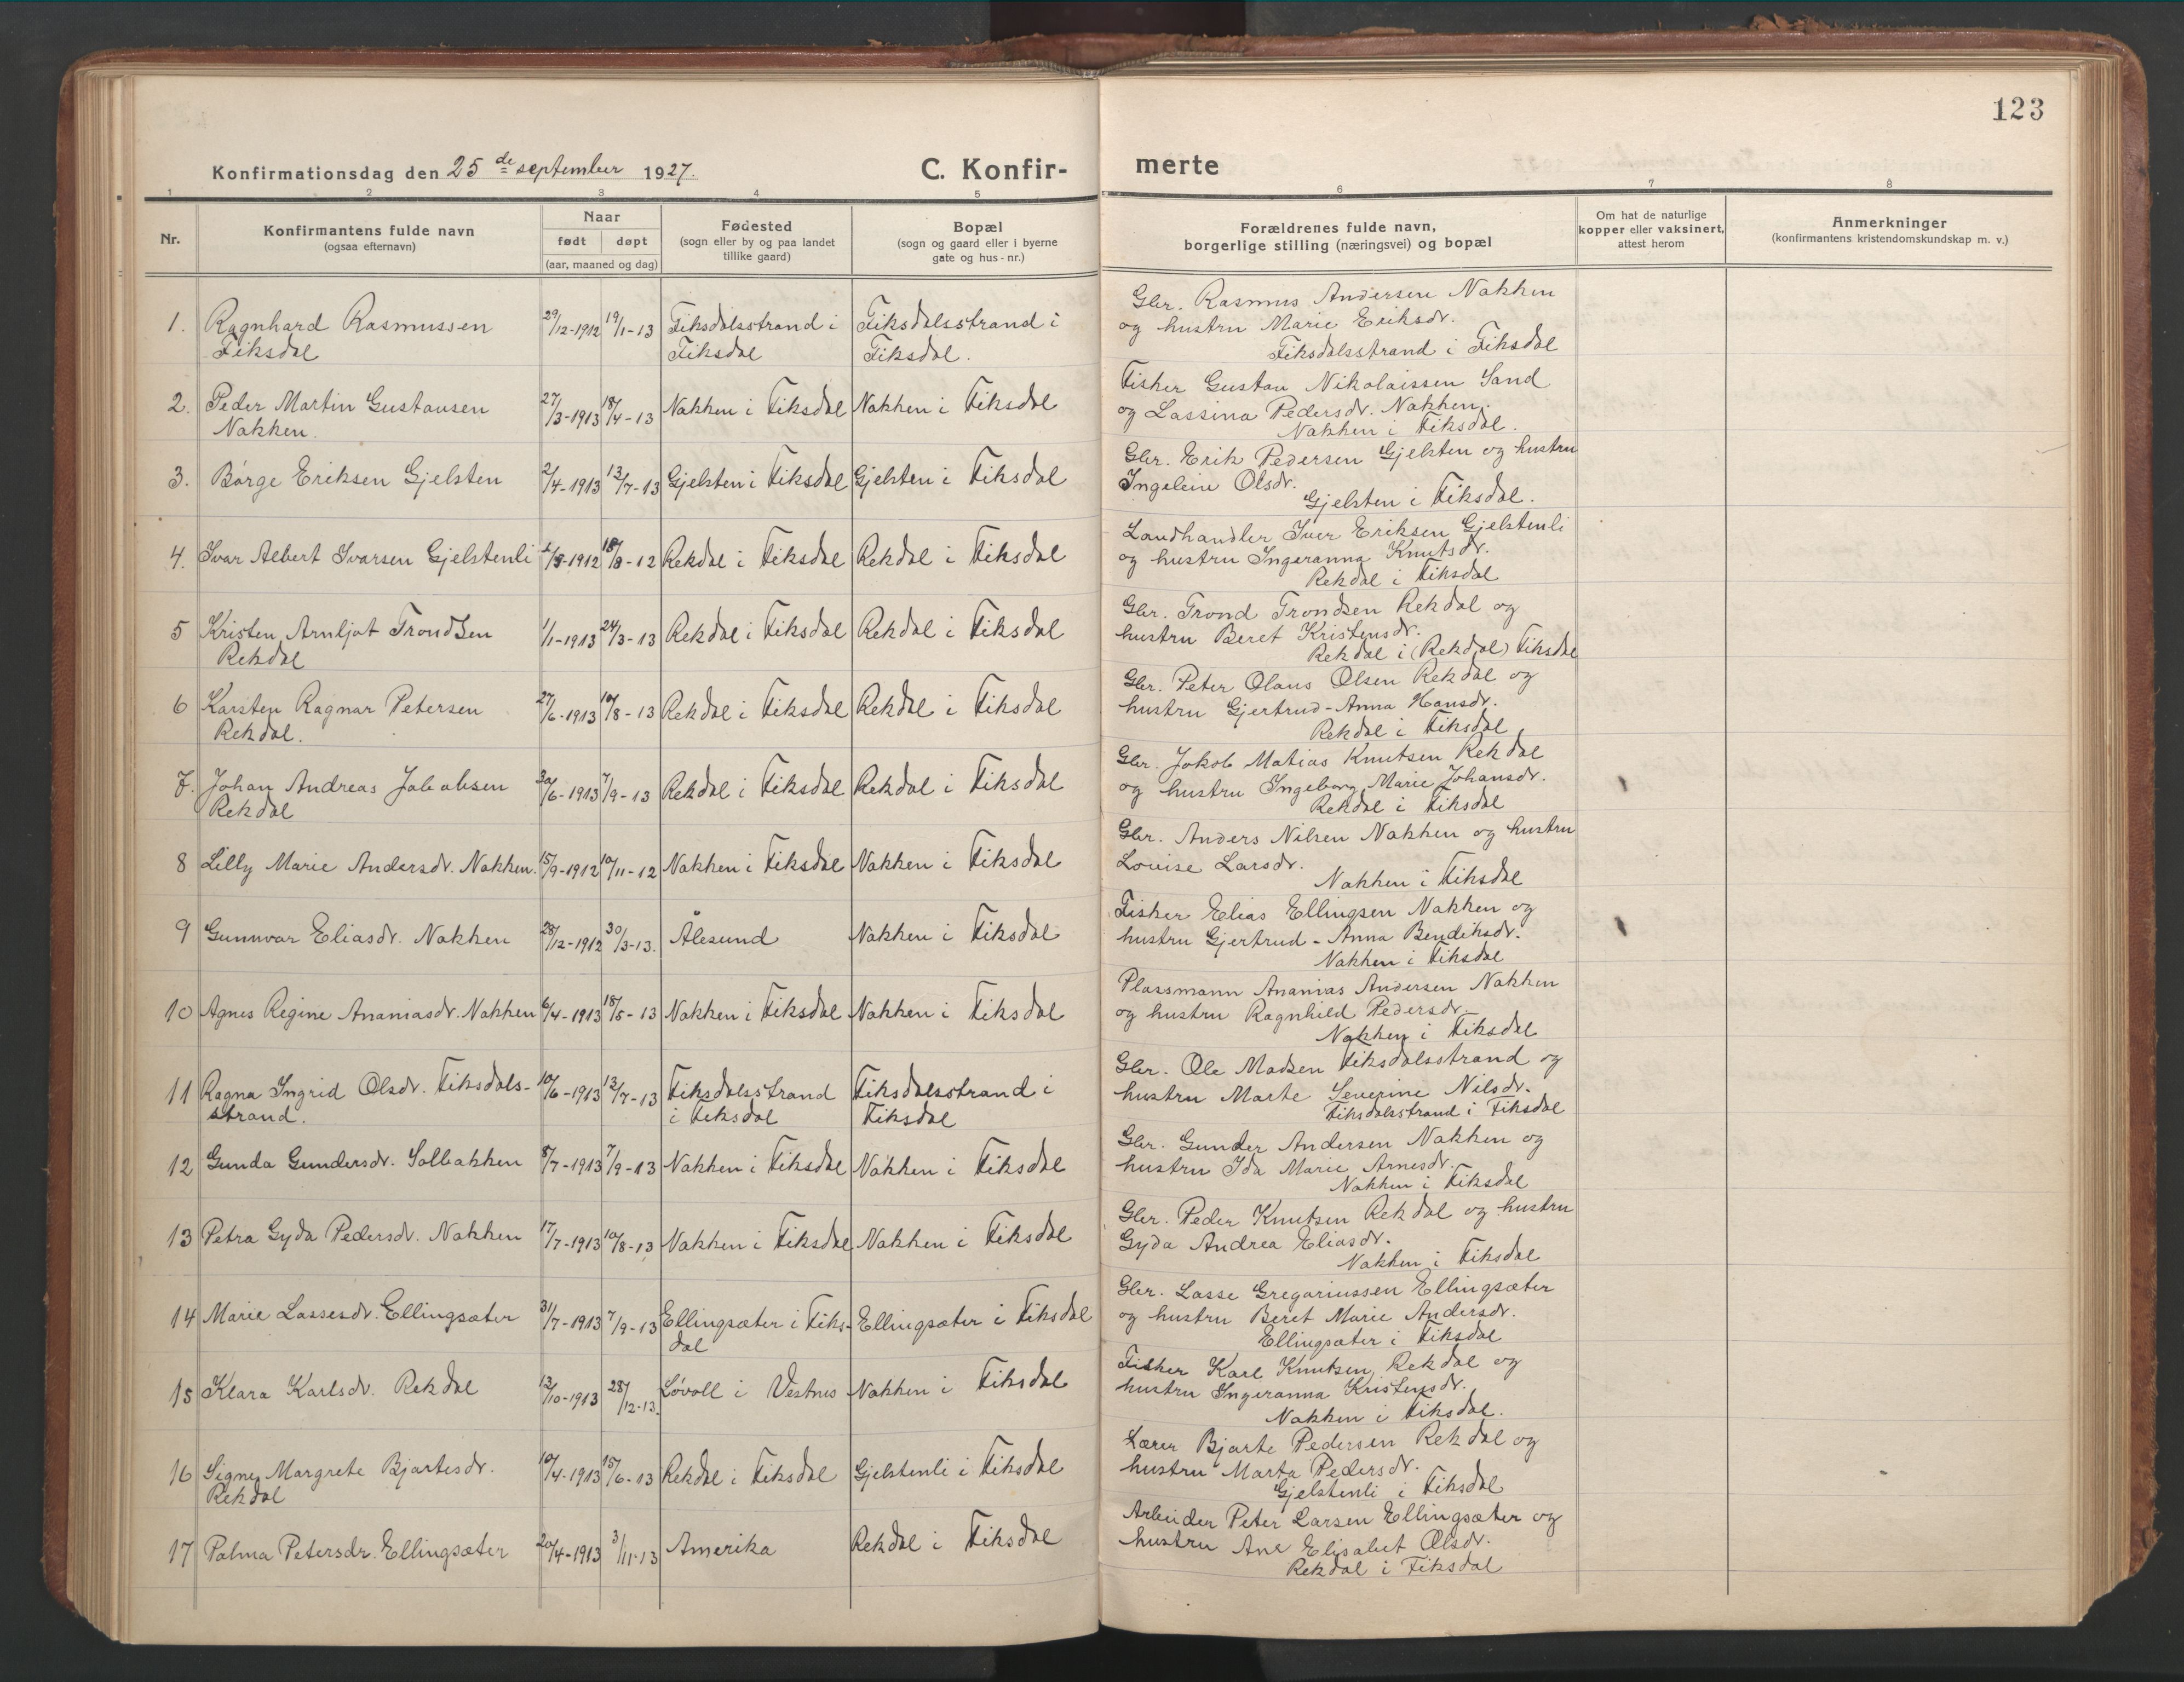 123
Konfirmationsdag den 25de september 1927.
C. Konfir-
merte
1 2 3 4 5 6 7 8
Nr.
Konfirmantens fulde navn
(ogsaa efternavn)
Naar
født døpt
(aar, maaned og dag)
Fødested
(sogn eller by og paa landet
tillike gaard)
Bopæl
(sogn og gaard eller i byerne
gate og hus-nr.)
Forældrenes fulde navn,
borgerlige stilling (næringsvei) og bopæl
Om hat de naturlige
kopper eller vaksinert,
attest herom
Anmerkninger
(konfirmantens kristendomskundskap m. v.)
1. Ragnhard Rasmussen 29/12-1912 19/1-13 Fiksdalsstrand i Fiksdalsstrand i
Fiksdal Fiksdal Fiksdal.
Gbr. Rasmus Andersen Nakken
og hustru Marie Eriksdr.
Fiksdalsstrand i Fiksdal
2. Peder Martin Gustavsen 27/3-1913 18/4-13 Nakken i Fiksdal Nakken i Fiksdal
Nakken.
Fisker Gustav Nikolaissen Sand
og Lassina Pedersdr. Nakken.
Nakken i Fiksdal.
3. Børge Eriksen Gjelsten 2/4-1913 13/7-13 Gjelsten i Fiksdal Gjelsten i Fiksdal
Gbr. Erik Pedersen Gjelsten og hustru
Ingeleine Olsdr.
Gjelsten i Fiksdal.
4. Ivar Albert Ivarsen Gjelstenli /8-1912 18/8-12 Rekdal i Fiksdal Rekdal i Fiksdal
Landhandler Iver Eriksen Gjelstenli
og hustru Ingeranna Knutsdr.
Rekdal i Fiksdal
5 Kristen Arnljot Trondsen 1/1-1913 24/3-13 Rekdal i Fiksdal Rekdal i Fiksdal
Rekdal
Gbr. Trond Trondsen Rekdal og
hustru Beret Kristensdr.
Rekdal i (Rekdal) Fiksdal
6 Karsten Ragnar Petersen 27/6-1913 10/8-13 Rekdal i Fiksdal Rekdal i Fiksdal
Rekdal.
Gbr. Peter Olaus Olsen Rekdal og
hustru Gjertrud-Anna Hansdr.
Rekdal i Fiksdal
7. Johan Andreas Jakobsen 30/6-1913 7/9-13 Rekdal i Fiksdal Rekdal i Fiksdal
Rekdal
Gbr. Jakob Matias Knutsen Rekdal
og hustru Ingeborg Marie Johansdr.
Rekdal i Fiksdal
8 Lilly Marie Andersdr. Nakken. 15/9-1912 10/11-12 Nakken i Fiksdal Nakken i Fiksdal
Gbr. Anders Nilsen Nakken og hustru
Louise Larsdr.
Nakken i Fiksdal
9 Gunnvor Eliasdr. Nakken 28/12-1912 30/3-13. Ålesund Nakken i Fiksdal
Fisker Elias Ellingsen Nakken og
hustru Gjertrud-Anna Bendiksdr.
Nakken i Fiksdal
10 Agnes Regine Ananiasdr. Nakken 6/4-1913 18/5-13 Nakken i Fiksdal Nakken i Fiksdal
Plassmann Ananias Andersen Nakken
og hustru Ragnhild Pedersdr.
Nakken i Fiksdal
11 Ragna Ingrid Olsdr. Fiksdals- 10/6-1913 13/7-13 Fiksdalsstrand Fiksdalsstrand i
strand. i Fiksdal Fiksdal
Gbr. Ole Madsen Fiksdalsstrand og
hustru Marte Severine Nilsdr.
Fiksdalsstrand i Fiksdal
12 Gunda Gundersdr. Solbakken 8/7-1913 7/9-13 Nakken i Fiksdal Nakken i Fiksdal
Gbr. Gunder Andersen Nakken og
hustru Ida Marie Arnesdr.
Nakken i Fiksdal
13 Petra Gyda Pedersdr. Nakken 17/7-1913 10/8-13 Nakken i Fiksdal Nakken i Fiksdal
Gbr. Peder Knutsen Rekdal og hustru
Gyda Andrea Eliasdr.
Nakken i Fiksdal
14 Marie Lassesdr. Ellingsæter 31/7-1913 7/9-13 Ellingsæter i Fiks- Ellingsæter i Fiksdal
dal
Gbr. Lasse Gregoriussen Ellingsæter
og hustru Beret Marie Andersdr.
Ellingsæter i Fiksdal
15 Klara Karlsdr. Rekdal 12/10-1913 28/12-13. Løvoll i Vestnes Nakken i Fiksdal
Fisker Karl Knutsen Rekdal og
hustru Ingeranna Kristensdr.
Nakken i Fiksdal.
16 Signe Margrete Bjartesdr. 10/4-1913 15/6-13 Rekdal i Fiksdal Gjelstenli i Fiksdal
Rekdal
Lærer Bjarte Pedersen Rekdal og
hustru Marta Pedersdr.
Gjelstenli i Fiksdal
17 Palma Petersdr. Ellingsæter 20/4-1913 3/11-13 Amerika Rekdal i Fiksdal
Arbeider Peter Larsen Ellingsæter og
hustru Ane Elisabet Olsdr.
Rekdal i Fiksdal